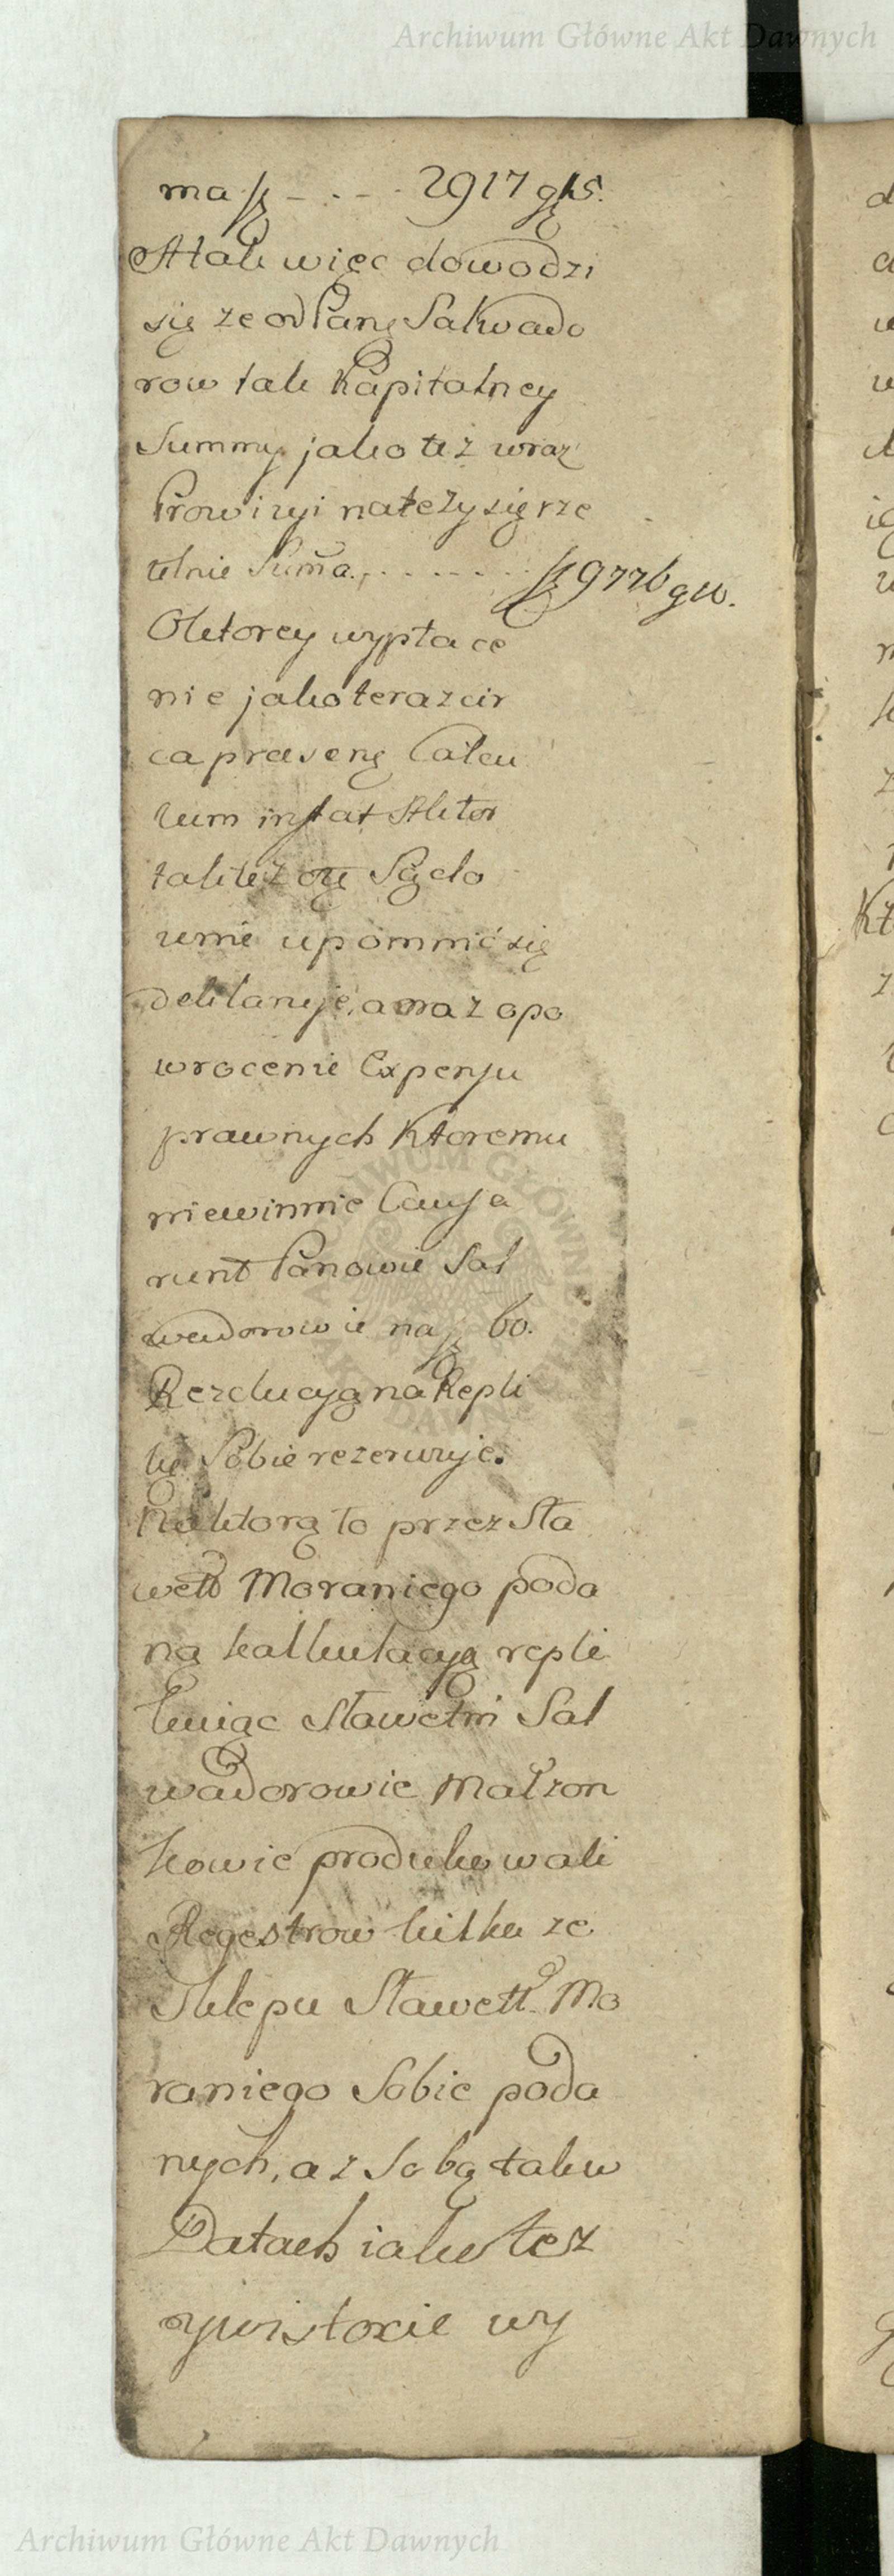 Archiwum Główne Akt Dawnych
ma fl - . - - . 2917 g 15.
A tak więc dowodzi
się ze od Panę Salwado
row tak Kapitalney
Summy jako też wraz
Prowizyi należy się rze
telnie Suma., . . . . - - . fl 9776 g
O ktorey wypłace
nie jako teraz cir
ca præsenę Calcu
lum instat Aktor
tak też Sądo
wnie upomnić się
deklaruje, a oraz o po
wrocenie Expensu
prawnych Ktoremu
niewinnie Causa
runt Panowie Sal
wadorowie na fl 60.
Rezolucyą na Repli
kę Sobie rezerwuje.
Na ktorą to przez Sła
wett Moraniego poda
ną kalkulacyą repli
kuiąc Sławetni Sal
wadorowie Małzon
kowie produkowali
Regestrow kilka ze
Sklepu Sławett. Mo
raniego Sobie poda
nych, a z Sobą tak w
Datach iako tez
y w istocie wy
Archiwum Główne Akt Dawnych